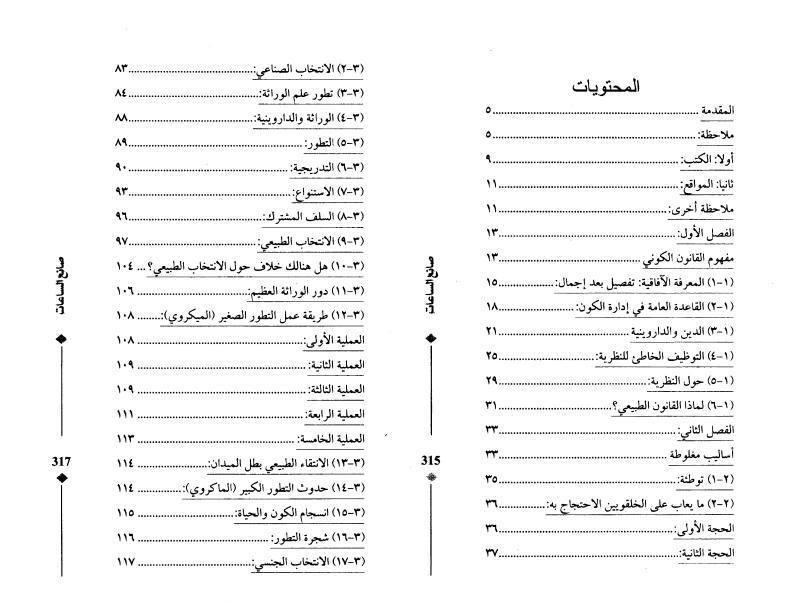 المحتويات
المقدمة ..... ٥
ملاحظة: ..... ٥
أولا: الكتب: ..... ٩
ثانيا: المواقع: ..... ١١
ملاحظة أخرى: ..... ١١
الفصل الأول: ..... ١٣
مفهوم القانون الكوني ..... ١٣
(١-١) المعرفة الآفاقية: تفصيل بعد إجمال: ..... ١٥
(٢-١) القاعدة العامة في إدارة الكون: ..... ١٨
(٣-١) الدين والداروينية ..... ٢١
(٤-١) التوظيف الخاطئ للنظرية: ..... ٢٥
(٥-١) حول النظرية: ..... ٢٩
(٦-١) لماذا القانون الطبيعي؟ ..... ٣١
الفصل الثاني: ..... ٣٣
أساليب مغلوطة ..... ٣٣
(١-٢) توطئة: ..... ٣٥
(٢-٢) ما يعاب على الخلقويين الاحتجاج به: ..... ٣٦
الحجة الأولى: ..... ٣٦
الحجة الثانية: ..... ٣٧
صانع الساعات
315
(٢-٣) الانتخاب الصناعي: ..... ٨٣
(٣-٣) تطور علم الوراثة: ..... ٨٤
(٤-٣) الوراثة والداروينية: ..... ٨٨
(٥-٣) التطور: ..... ٨٩
(٦-٣) التدريجية: ..... ٩٠
(٧-٣) الاستنواع: ..... ٩٣
(٨-٣) السلف المشترك: ..... ٩٦
(٩-٣) الانتخاب الطبيعي: ..... ٩٧
(١٠-٣) هل هنالك خلاف حول الانتخاب الطبيعي؟ ... ١٠٤
(١١-٣) دور الوراثة العظيم: ..... ١٠٦
(١٢-٣) طريقة عمل التطور الصغير (الميكروي): ..... ١٠٨
العملية الأولى: ..... ١٠٨
العملية الثانية: ..... ١٠٩
العملية الثالثة: ..... ١٠٩
العملية الرابعة: ..... ١١١
العملية الخامسة: ..... ١١٣
(١٣-٣) الانتقاء الطبيعي بطل الميدان: ..... ١١٤
(١٤-٣) حدوث التطور الكبير (الماكروي): ..... ١١٤
(١٥-٣) انسجام الكون والحياة: ..... ١١٥
(١٦-٣) شجرة التطور: ..... ١١٦
(١٧-٣) الانتخاب الجنسي: ..... ١١٧
صانع الساعات
317